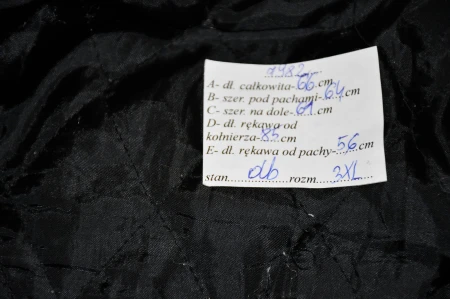 A- dł. całkowita-66 cm
B- szer. pod pachami-64cm
C- szer. na dole-61 cm
D- dł. rękawa od
kołnierza-85 cm
E- dł. rękawa od pachy-56 cm
stan db rozm. 3XL